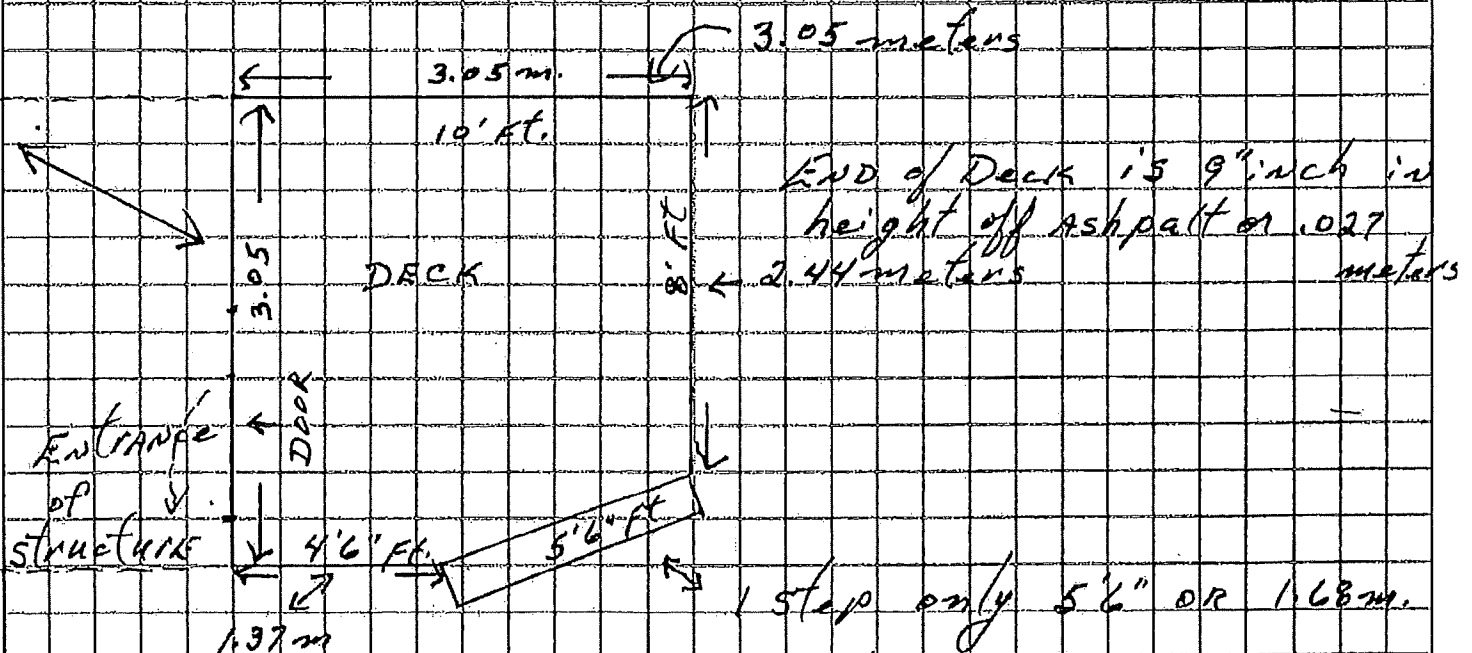 3.05 meters
3.05 m.
10' Ft.
END of Deck is 9" inch in
height off Ashpalt or .027
meters
3.05
DECK
8' Ft
2.44 meters
DOOR
Entrance
of
structure
4'6" Ft.
5'6" Ft
1 Step only 5'6" OR 1.68m.
1.37 m